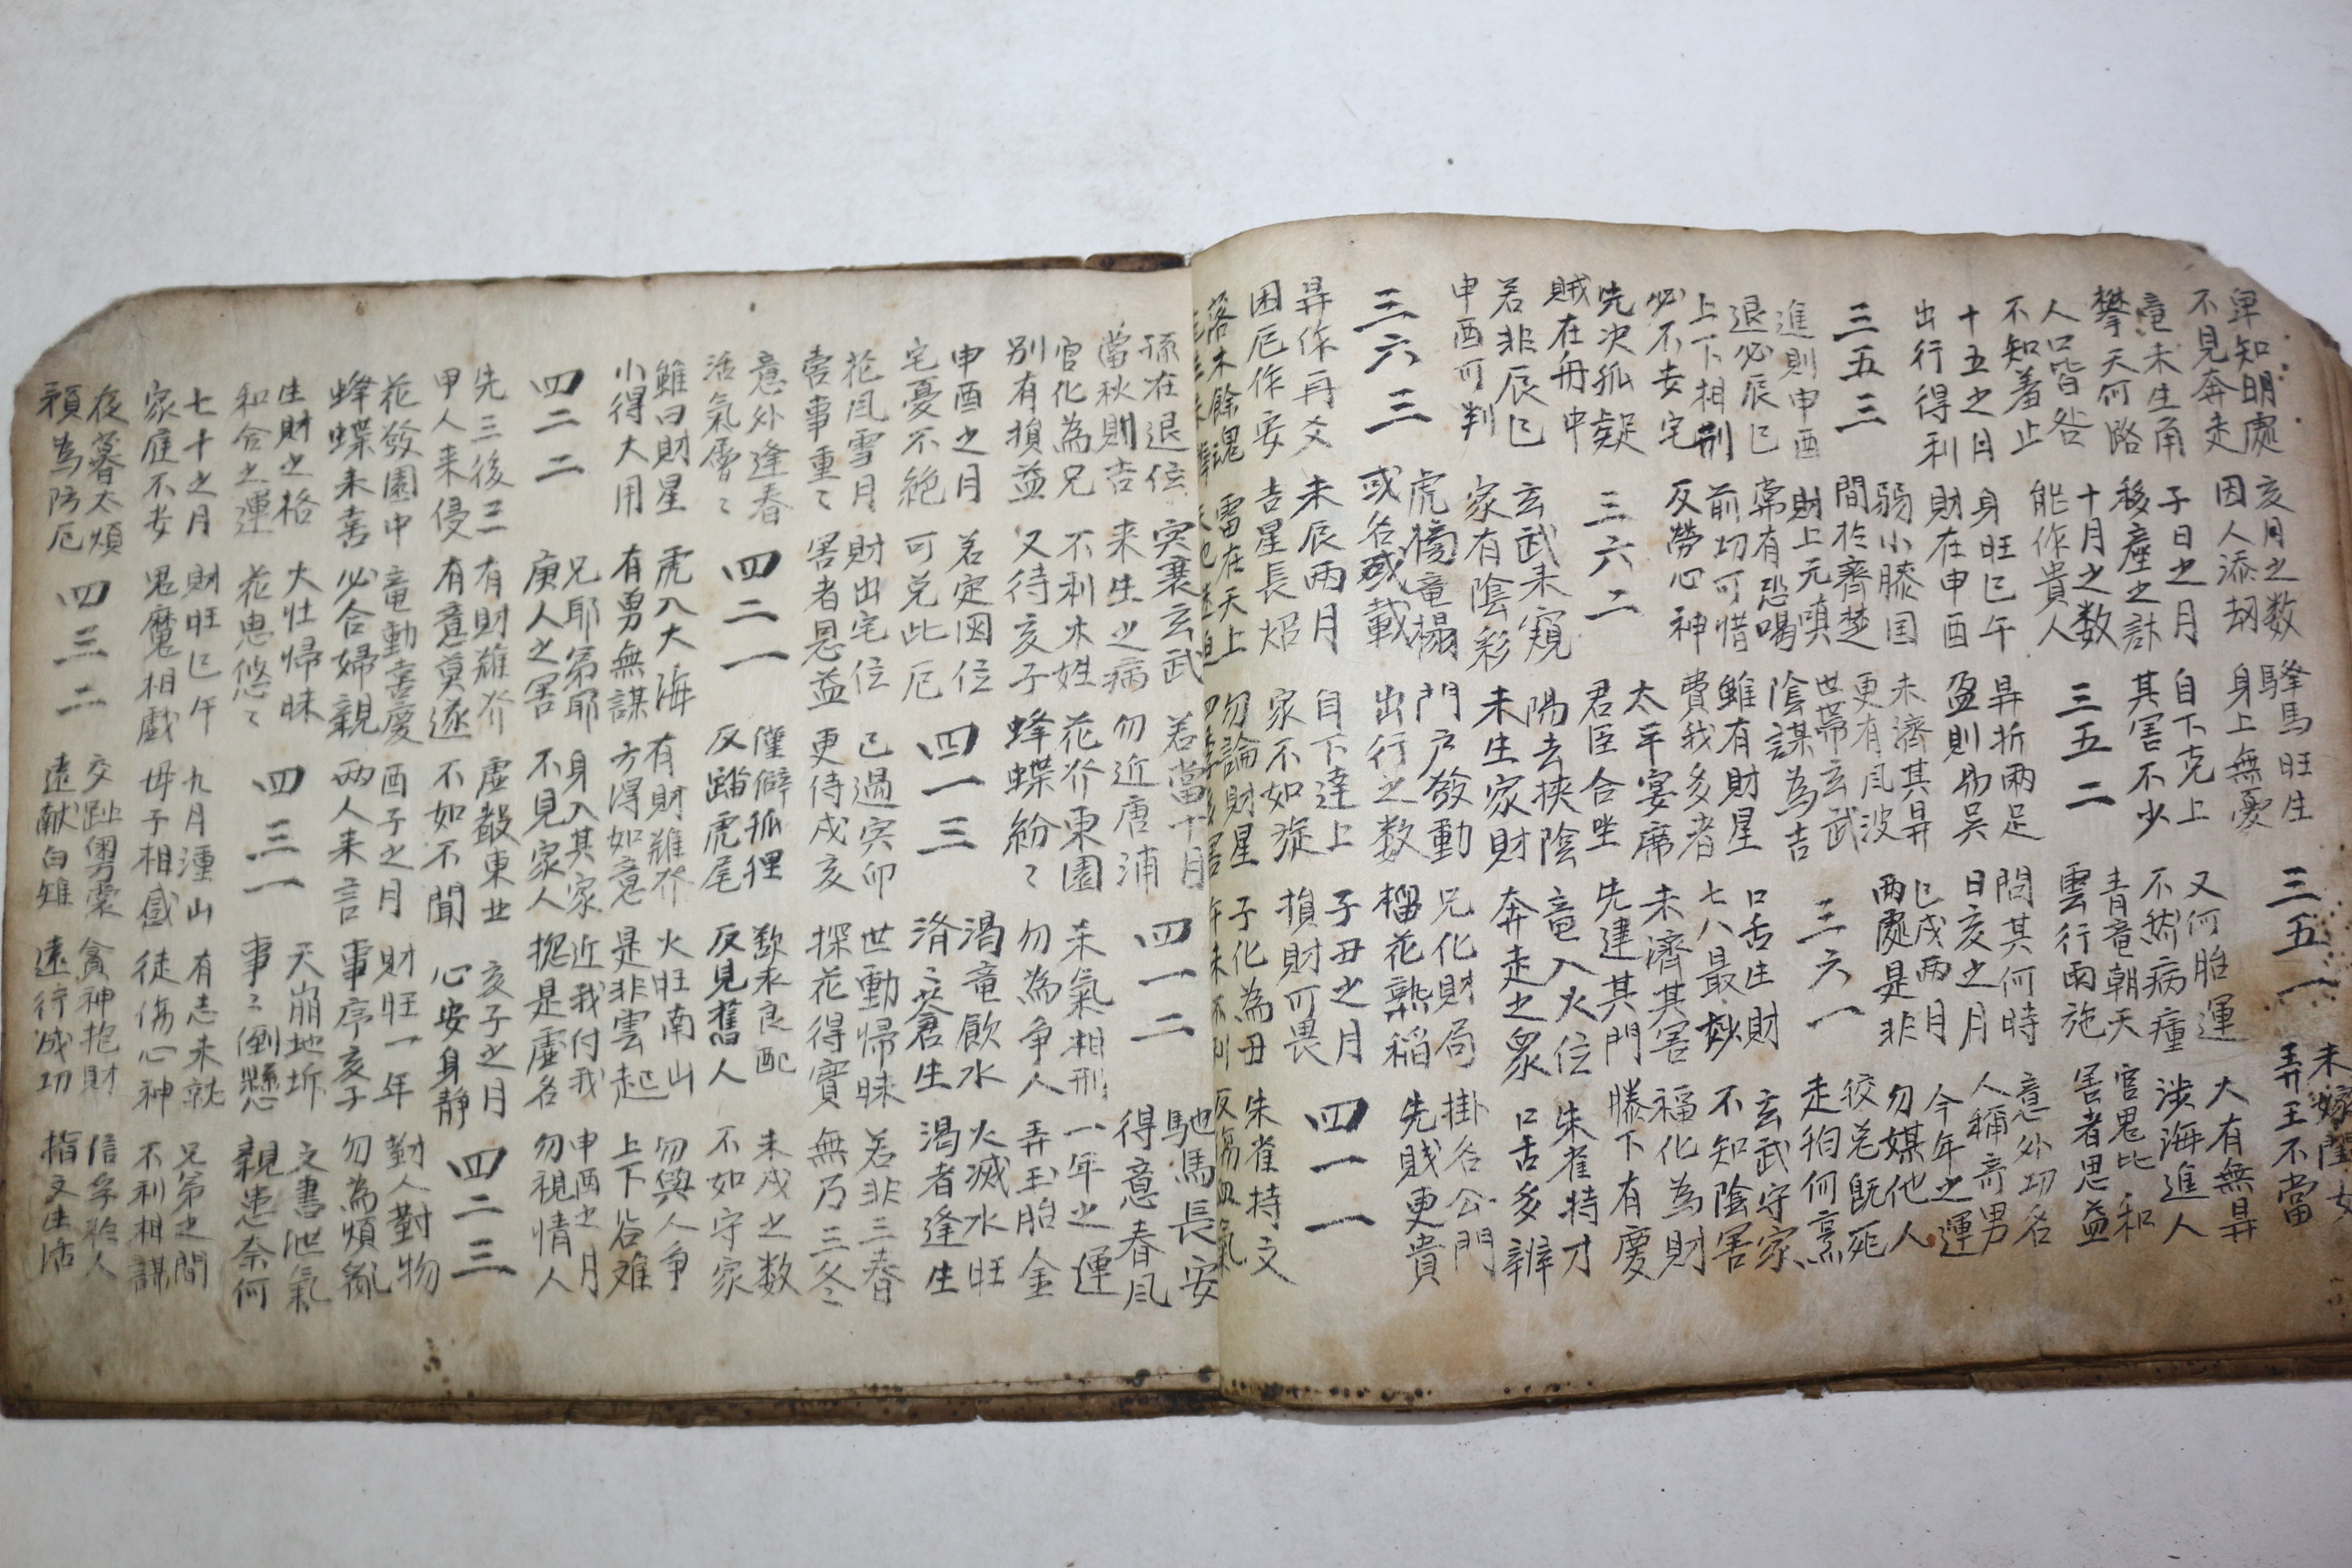 卑知明處
不見奔走
亥月之数
因人添刼
驛馬旺生
身上無憂
三五一
未嫁閨女
弄玉不當
竜未生角
攀天何路
子日之月
移産之計
自下克上
其害不少
又何胎運
不然病瘇
大有無昇
涉海進人
人口皆咎
不知羞止
十月之数
能作貴人
三五二
青竜朝天
雲行雨施
官鬼比和
害者思益
十五之月
出行得利
身旺巳午
財在申酉
昇折兩足
盈則易吴
問其何時
日亥之月
意外功名
人稱奇男
三五三
弱小滕国
間於齊楚
未濟其昇
更有風波
巳戌両月
両處是非
今年之運
勿媒他人
進則申酉
退必辰巳
財上元嗔
常有恐喝
世帶玄武
陰謀為吉
三六一
狡兎既死
走狗何烹
上下相刑
必不安宅
前功可惜
反勞心神
雖有財星
費我多者
口舌生財
七八最妙
玄武守家
不知陰害
先次孤疑
賊在舟中
三六二
太平宴席
君臣合坐
未濟其害
先建其門
福化為財
膝下有慶
若非辰巳
申酉可判
玄武未窺
家有陰彩
陽去挾陰
未生家財
竜入火位
奔走之象
朱雀特才
口舌多辨
三六三
虎榜竜榻
或名或載
門戶發動
出行之数
兄化財局
榴花熟稲
掛名公門
先賎更貴
昇作再爻
困厄作安
未辰両月
吉星長炤
自下達上
家不如旋
子丑之月
損財可畏
四一一
落木餘魂
雷在天上
勿論財星
子化為丑
朱雀持文
反傷血氣
孫在退位
當秋則吉
突衰玄武
来生之病
若當十月
勿近唐浦
四一二
馳馬長安
得意春風
官化為兄
別有損益
不利木姓
又待亥子
花發東園
蜂蝶紛々
杀氣相刑
勿為争人
一年之運
弄玉胎金
申酉之月
宅憂不絶
若定囡位
可免此厄
四一三
渴竜飲水
済々蒼生
火滅水旺
渴者逢生
花風雪月
害事重々
財出宅位
害者恩益
已過寅卯
更待戌亥
世動帰昧
探花得實
若非三春
無乃三冬
意外逢春
活氣層々
四二一
僅僻狐狸
反踏虎尾
歎求良配
反見舊人
未戌之数
不如守家
雖曰財星
小得大用
虎入大海
有勇無謀
有財雖發
方得如意
火旺南山
是非雲起
勿與人争
上下谷难
四二二
兄耶弟耶
庚人之害
身入其家
不見家人
近我付我
摠是虛名
申酉之月
勿視情人
先三後三
甲人来侵
有財雖發
有意莫遂
虛報東世
不如不聞
亥子之月
心安身静
四二三
花發園中
蜂蝶未喜
竜動喜慶
必合婦親
酉子之月
両人来言
財旺一年
事序亥子
勤人對物
勿為煩亂
生財之格
和合之運
大壮帰昧
花鬼悠々
四三一
天崩地坼
事々倒懸
文書泄氣
親患奈何
七十之月
家庭不安
財旺巳午
鬼魔相戲
九月湩山
母子相感
有志未就
徒傷心神
兄弟之間
不利相謀
夜暮太煩
預為防厄
四三二
交趾粤裳
遠献白雉
貪神抱財
遠行成功
信乎人
指文生活